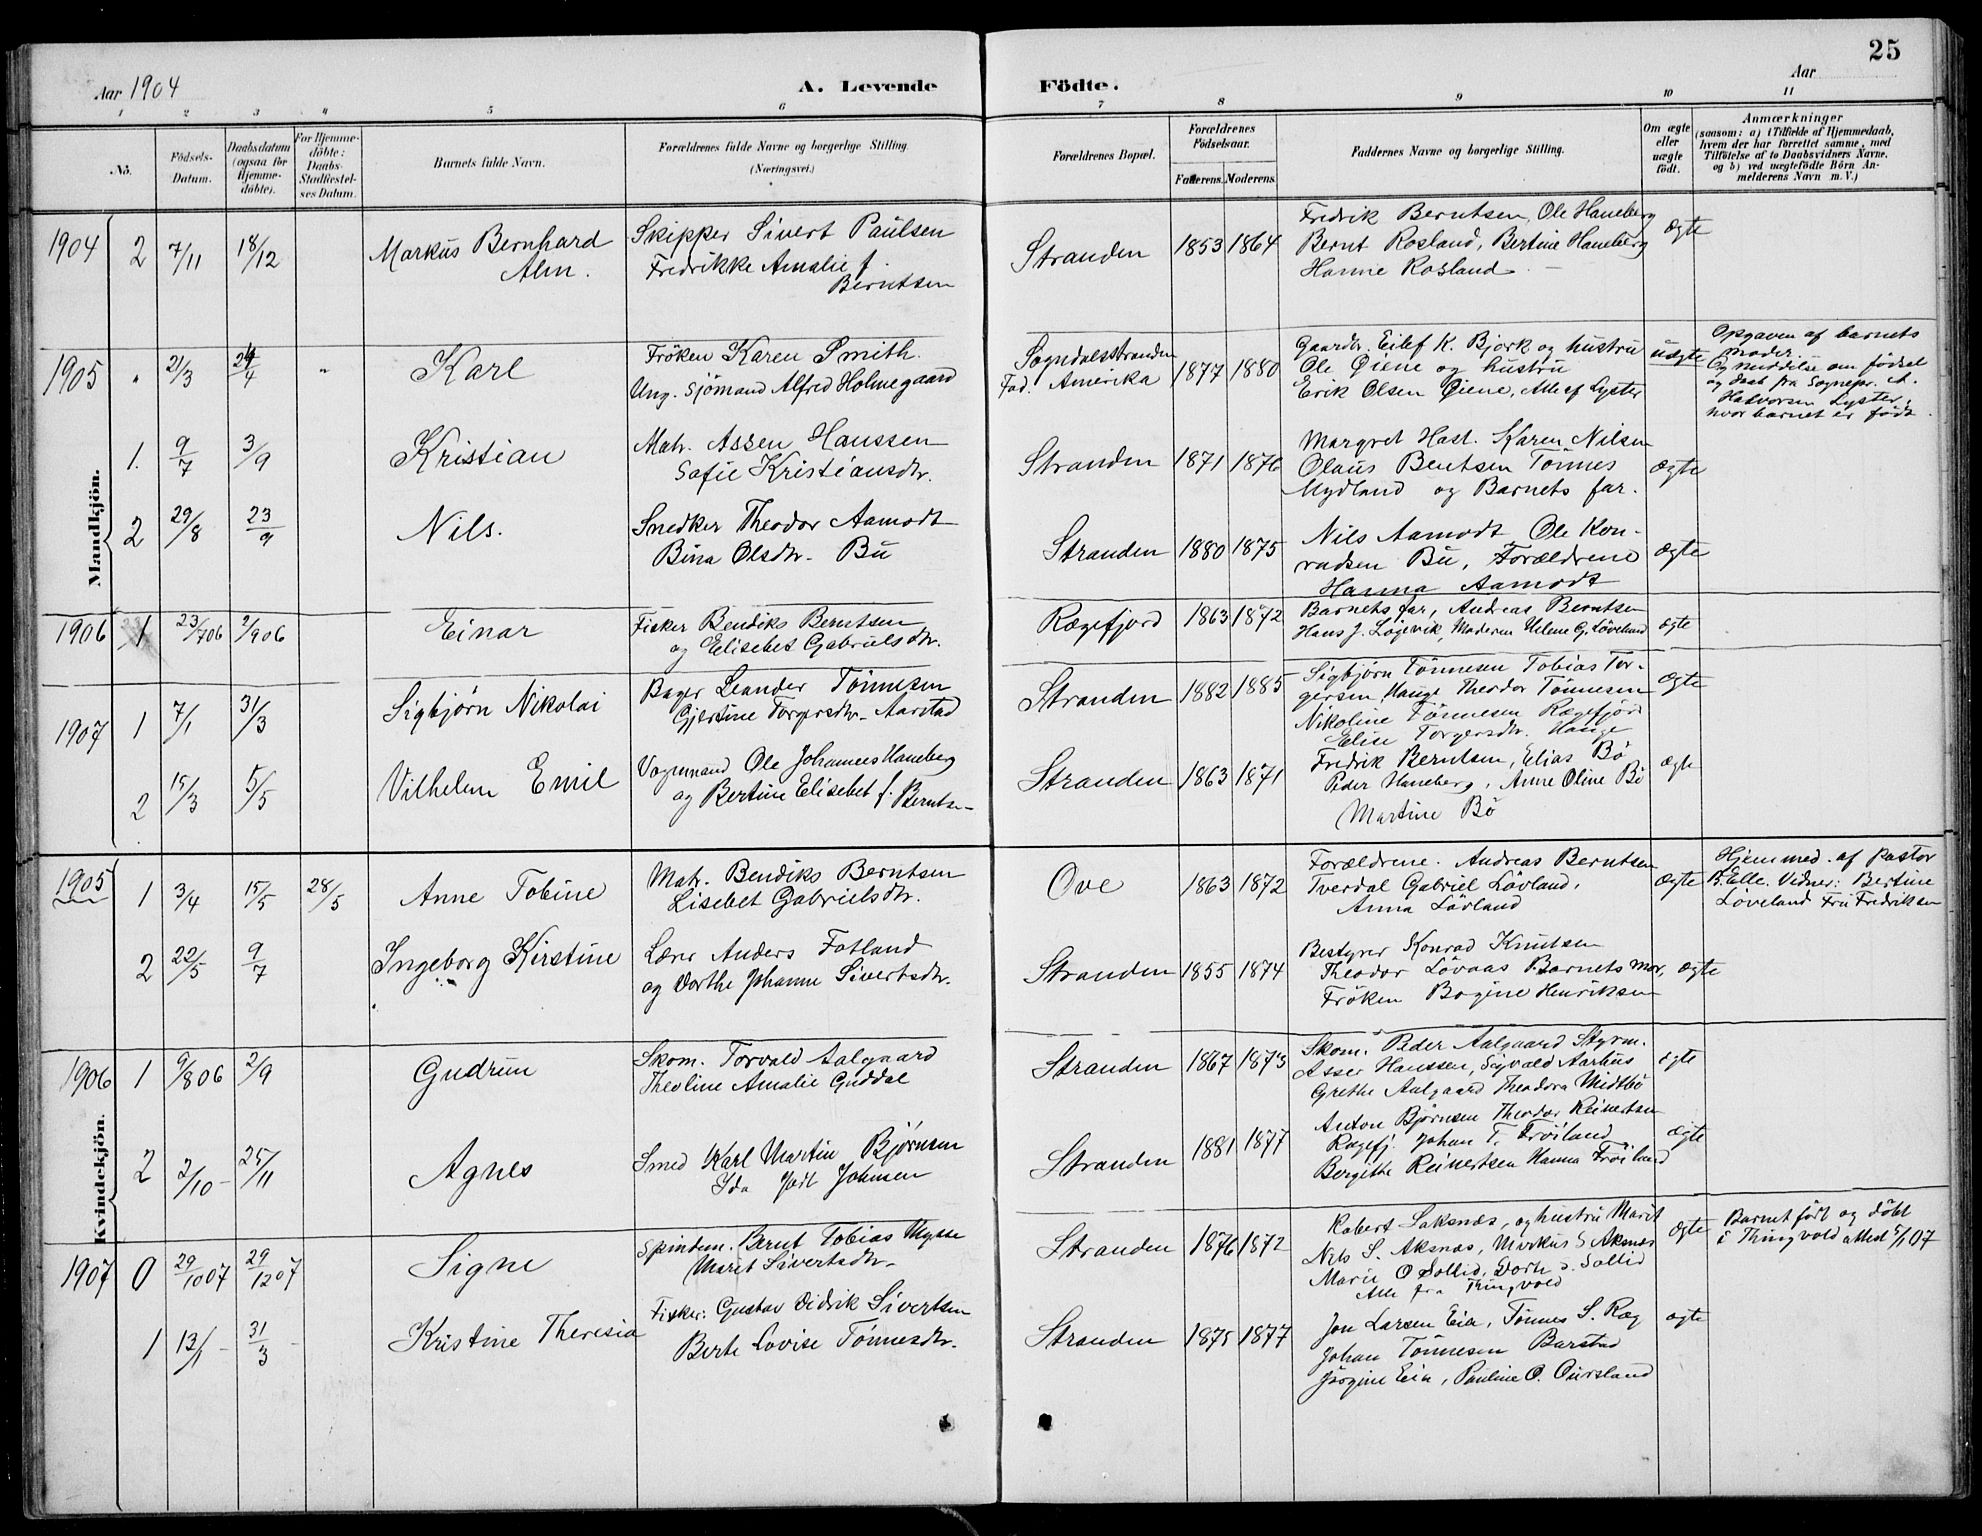 25
Aar 1904
A. Levende Födte.
Aar
1 2 3 4 5 6 7 8 9 10 11
No.
Födsels-Datum.
Daabsdatum (ogsaa for Hjemme-döbte).
For Hjemme-döbte: Daabs-Stadfæstel-ses Datum.
Barnets fulde Navn.
Forældrenes fulde Navne og borgerlige Stilling. (Næringsvei.)
Forældrenes Bopæl.
Forældrenes Födselsaar.
Faderens. Moderens.
Faddernes Navne og borgerlige Stilling.
Om ægte eller uægte födt.
Anmærkninger
(saasom: a) i Tilfælde af Hjemmedaab,
hvem der har forrettet samme, med
Tilföielse af to Daabsvidners Navne,
og b) ved uægtefödte Börn An-
melderens Navn m. V.)
Mandkjön.
1904 2 7/11 18/12 Markus Bernhard Alm.
Skipper Sivert Paulsen
Fredrikke Amalie f. Berntsen
Stranden 1853 1864
Fredrik Berntsen, Ole Haneberg
Bernt Rosland, Bertine Haneberg
Hanne Rosland
ægte
1905 " 21/3 24/4 " Karl
Fröken Karen Smith.
Ung. Sjömand Alfred Holmegaard
Sogndalsstranden
Fad. Amerika 1877 1880
Gaardbr. Eilef K. Bjork og hustru
Ole Øiene og hustru
Erik Olsen Øiene, Alle af Lyster
uægte
Opgaven af barnets
moder.
Og meddelse om födsel
og daab fra Sognepr. A.
Halvorsen Lyster,
hvor barnet er født.
1. 9/7 3/9 Kristian
Matr. Assen Hanssen
Safie Kristiansdtr.
Stranden 1871 1876
Margret Hast. Karen Nilsen
Olaus Bentsen Tönnes
Mydland og Barnets far.
ægte
2 29/8 23/9 Nils.
Snedker Theodor Aamodt
Bina Olsdtr. Bu
Stranden 1880 1875
Nils Aamodt, Ole Kon-
radsen Bu, Forældrene
Hanna Aamodt
ægte
1906 1 23/706 2/906 Einar
Fisker Bendiks Berntsen
og Elisebet Gabrielsdtr.
Rægefjord 1863 1872
Barnets far, Andreas Berntsen
Hans J. Løgevik, Moderen Helene G. Løveland
ægte
1907 1 7/1 31/3 Sigbjørn Nikolai
Bager Leander Tönnesen
Gjertine Torgersdtr. Aarstad
Stranden 1882 1885
Sigbjørn Tönnesen Tobias Tor-
gersen Hauge Theodor Tønnesen
Nikoline Tönnesen Rægefjord
Elise Torgersdtr. Hauge
ægte
2 15/3 5/5 Vilhelm Emil
Vognmand Ole Johannes Haneberg
og Bertine Elisebet f. Berntsen
Stranden 1863 1871
Fredrik Berntsen, Elias Bö
Peder Haneberg, Anne Oline Bö
Martine Bö
ægte
Kvindekjön.
1905 1 3/4 15/5 28/5 Anne Tobine
Matr. Bendiks Berntsen
Lisebet Gabrielsdtr.
Ove 1863 1872
Forældrene. Andreas Berntsen
Tverdal Gabriel Lövland,
Anna Lövland
ægte
Hjemmed. af Pastor
B. Elle. Vidner: Bertine
Løveland Fru Fredriksen
2 22/5 9/7 Ingeborg Kirstine
Lærer Anders Fotland
og Dorthe Johanne Sivertsdtr.
Stranden 1855 1874
Bestyrer Konrad Knutsen
Theodor Lövaas Barnets mor,
Fröken Bogine Henriksen
ægte
1906 1 9/806 2/9 Gudrun
Skom. Torvald Aalgaard
Theoline Amalie Guddal
Stranden 1867 1873
Skom. Peder Aalgaard Styrm.
Asser Hanssen, Sigvald Aarhus
Grethe Aalgaard Theodora Midtbö
ægte
2 2/10 25/11 Agnes
Smed Karl Martin Bjørnsen
Ida Johnsen
Stranden 1881 1877
Anton Bjørnsen Theodor Reinertsen
Rægefj. Johan T. Fröiland
Bergithe Reinertsen Hanna Fröiland
ægte
1907 0 29/1007 29/1207 Signe
Spindem. Bernt Tobias Mysse
Maret Sivertsdtr.
Stranden 1876 1872
Robert Saksnæs, og hustru Marit
Nils S. Aksnæs, Markus S Aksnæs
Marie O Sollid, Dorte S. Sollid
Alle fra Tingvold
ægte
Barnet født og döbt
i Thingvold attest 5/1 07
1 13/1 31/3 Kristine Theresia
Fisker: Gustav Didrik Sivertsen
Berte Lovise Tönnesdtr.
Stranden 1875 1877
Jon Larsen Eia, Tönnes S. Ræg
Johan Tönnesen Barstad
Jörgine Eia, Pauline O. Oursland
ægte